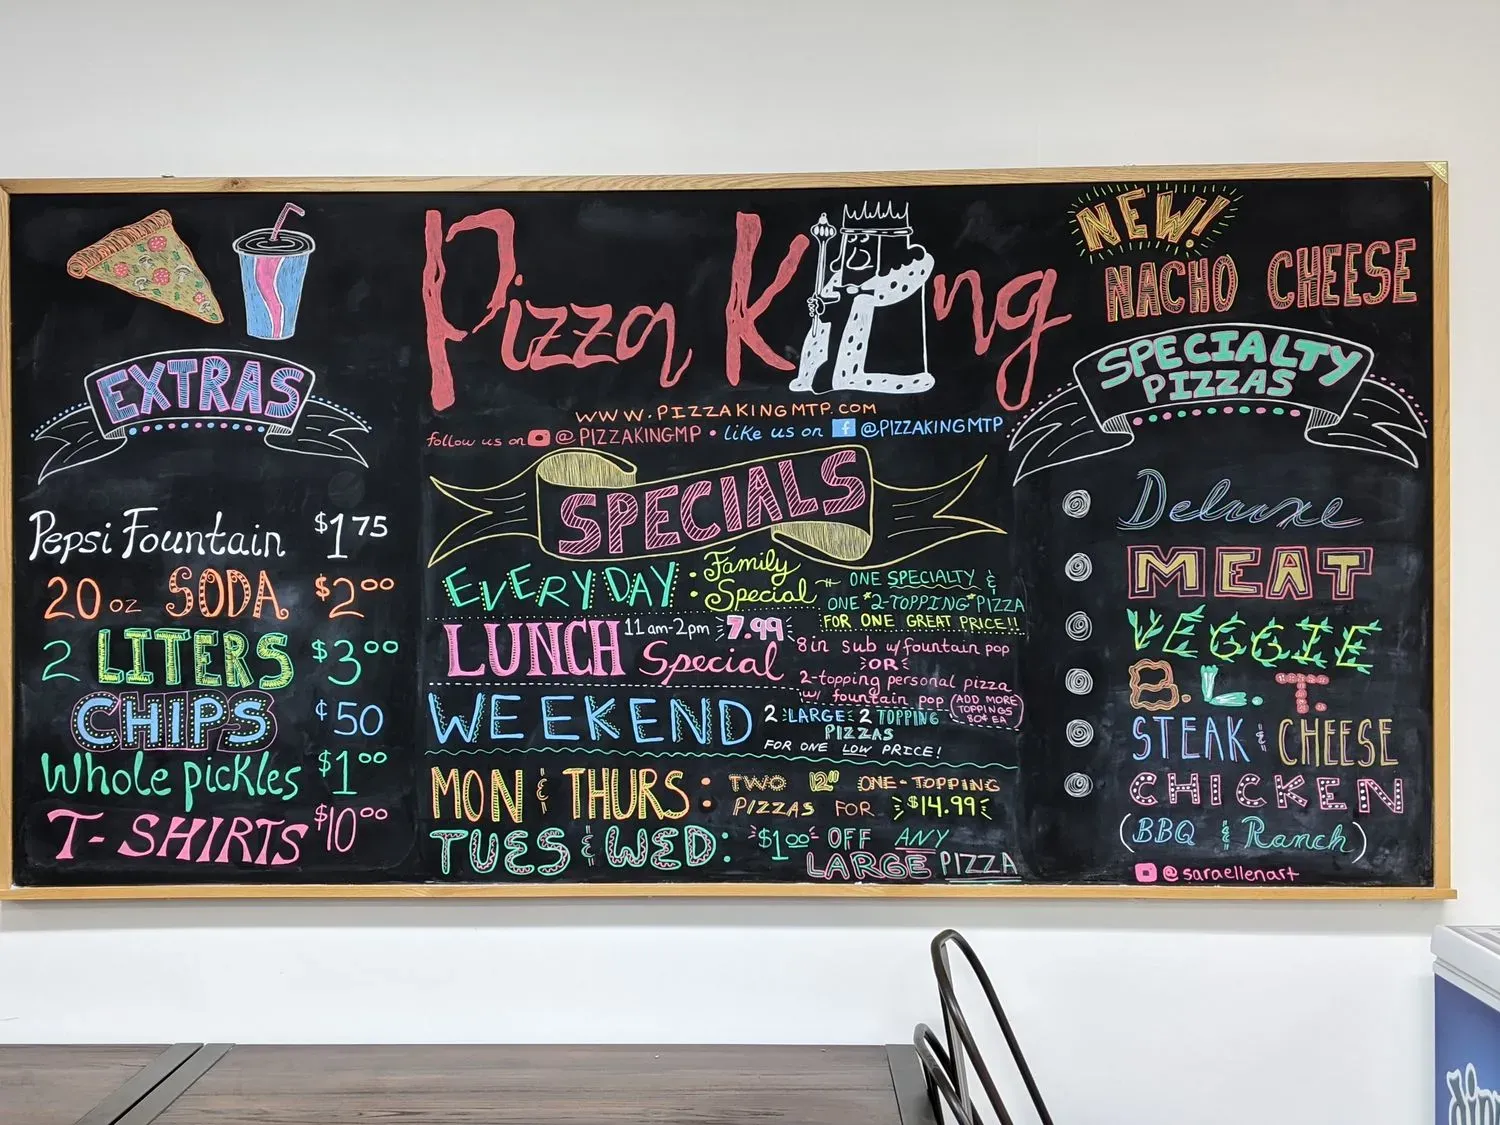 Pizza King
WWW.PIZZAKINGMTP.COM
follow us on @PIZZAKINGMP • like us on f @PIZZAKINGMTP
EXTRAS
Pepsi Fountain $1 75
20 oz SODA $2 00
2 LITERS $3 00
CHIPS ¢50
Whole pickles $1 00
T-SHIRTS $10 00
SPECIALS
EVERYDAY: Family Special → ONE SPECIALTY &
ONE "2-TOPPING" PIZZA
FOR ONE GREAT PRICE!!
LUNCH 11am-2pm 7.99
Special
8in sub w/fountain pop
OR
2-topping personal pizza
w/ fountain pop (ADD MORE
TOPPINGS
80¢ EA
WEEKEND 2 LARGE 2 TOPPING
PIZZAS
FOR ONE LOW PRICE!
MON & THURS: TWO 12" ONE-TOPPING
PIZZAS FOR $14.99
TUES & WED: $1 00 OFF ANY
LARGE PIZZA
NEW!
NACHO CHEESE
SPECIALTY
PIZZAS
Deluxe
MEAT
VEGGIE
B.L.T.
STEAK & CHEESE
CHICKEN
(BBQ & Ranch)
@saraellenart